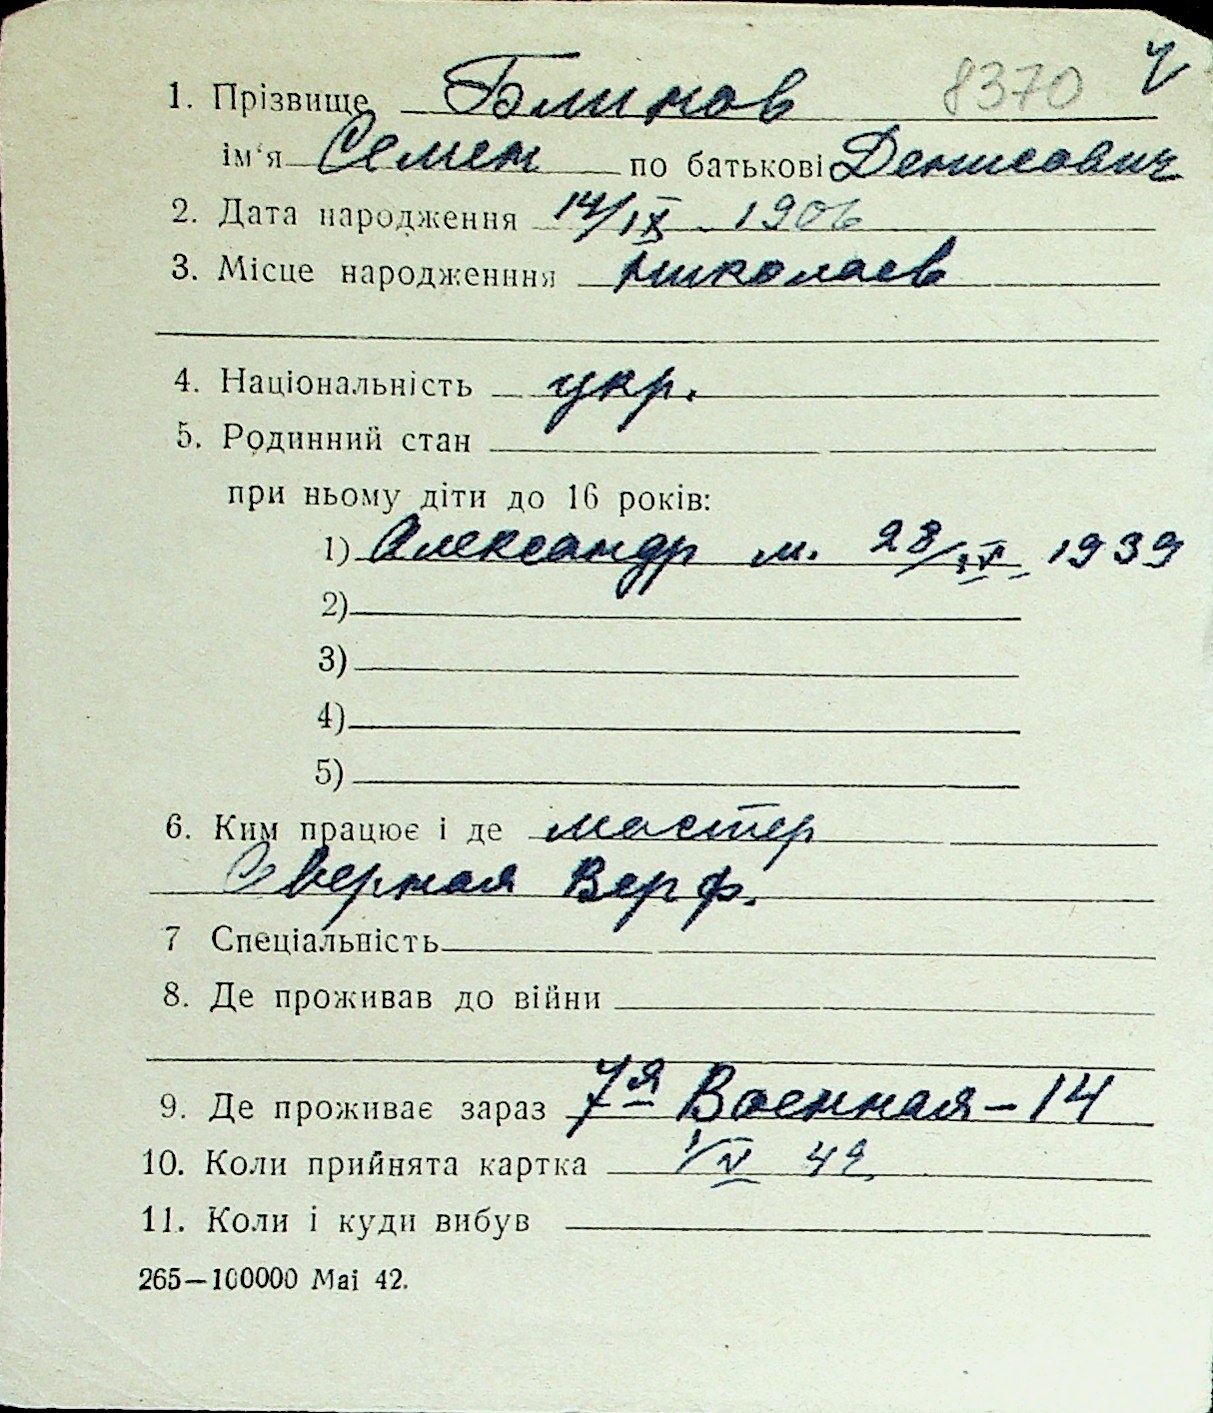 8370 Ч
1. Прізвище Блинов
ім'я Семен по батькові Денисович
2. Дата народження 14/IX - 1906
3. Місце народженння Николаев
4. Національність укр.
5. Родинний стан
при ньому діти до 16 років:
1) Александр м. 28/IV - 1939
2)
3)
4)
5)
6. Ким працює і де мастер
Сверная Верф.
7 Спеціальність
8. Де проживав до війни
9. Де проживає зараз 7я Военная-14
10. Коли прийнята картка 1/V 42
11. Коли і куди вибув
265—100000 Mai 42.